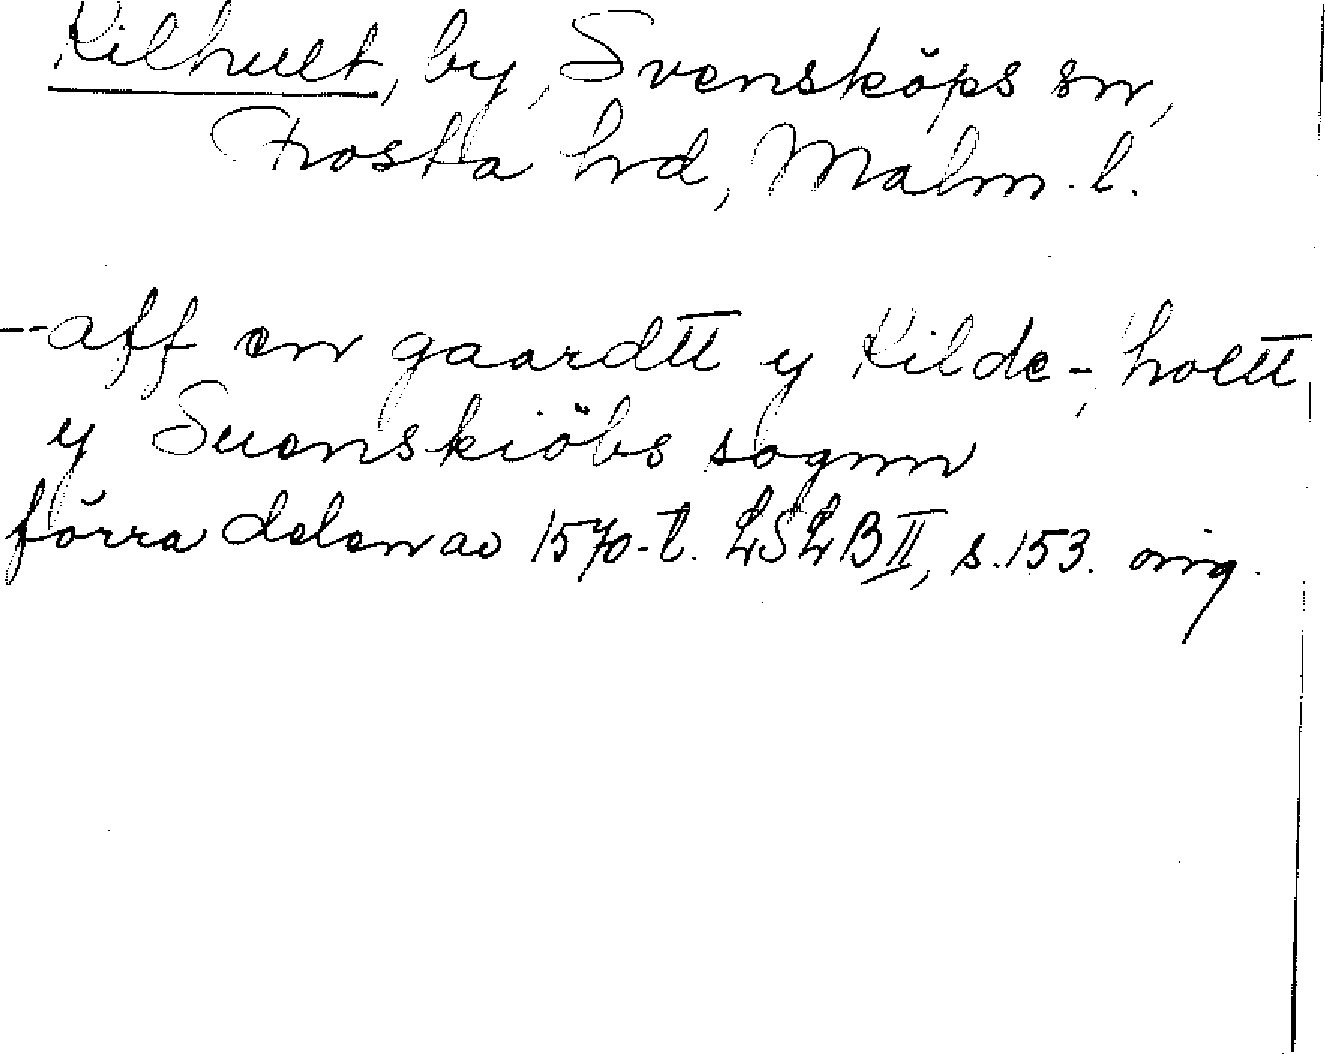 Kilhult, by, Svensköps sn,
Frosta hrd, Malm. l.
--aff en gaardtt y Kilde-, holtt,
y Suenskiöbs sognn
förra delen av 1570-t. LSLB II, s. 153. orig.